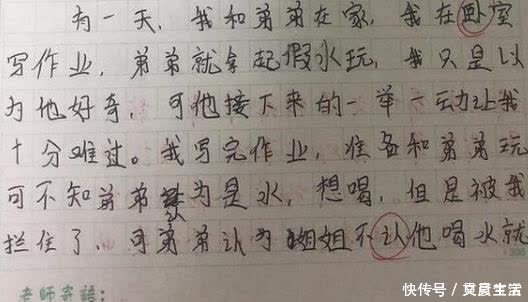 有一天，我和弟弟在家，我在卧室
写作业，弟弟就拿起假水玩，我只是以
为他好奇，可他接下来的一举一动让我
十分难过。我写完作业，准备和弟弟玩
可不知弟弟以为是水，想喝，但是被我
拦住了，可弟弟认为姐姐不让他喝水就
老师寄语：
快传号／莫晨生活